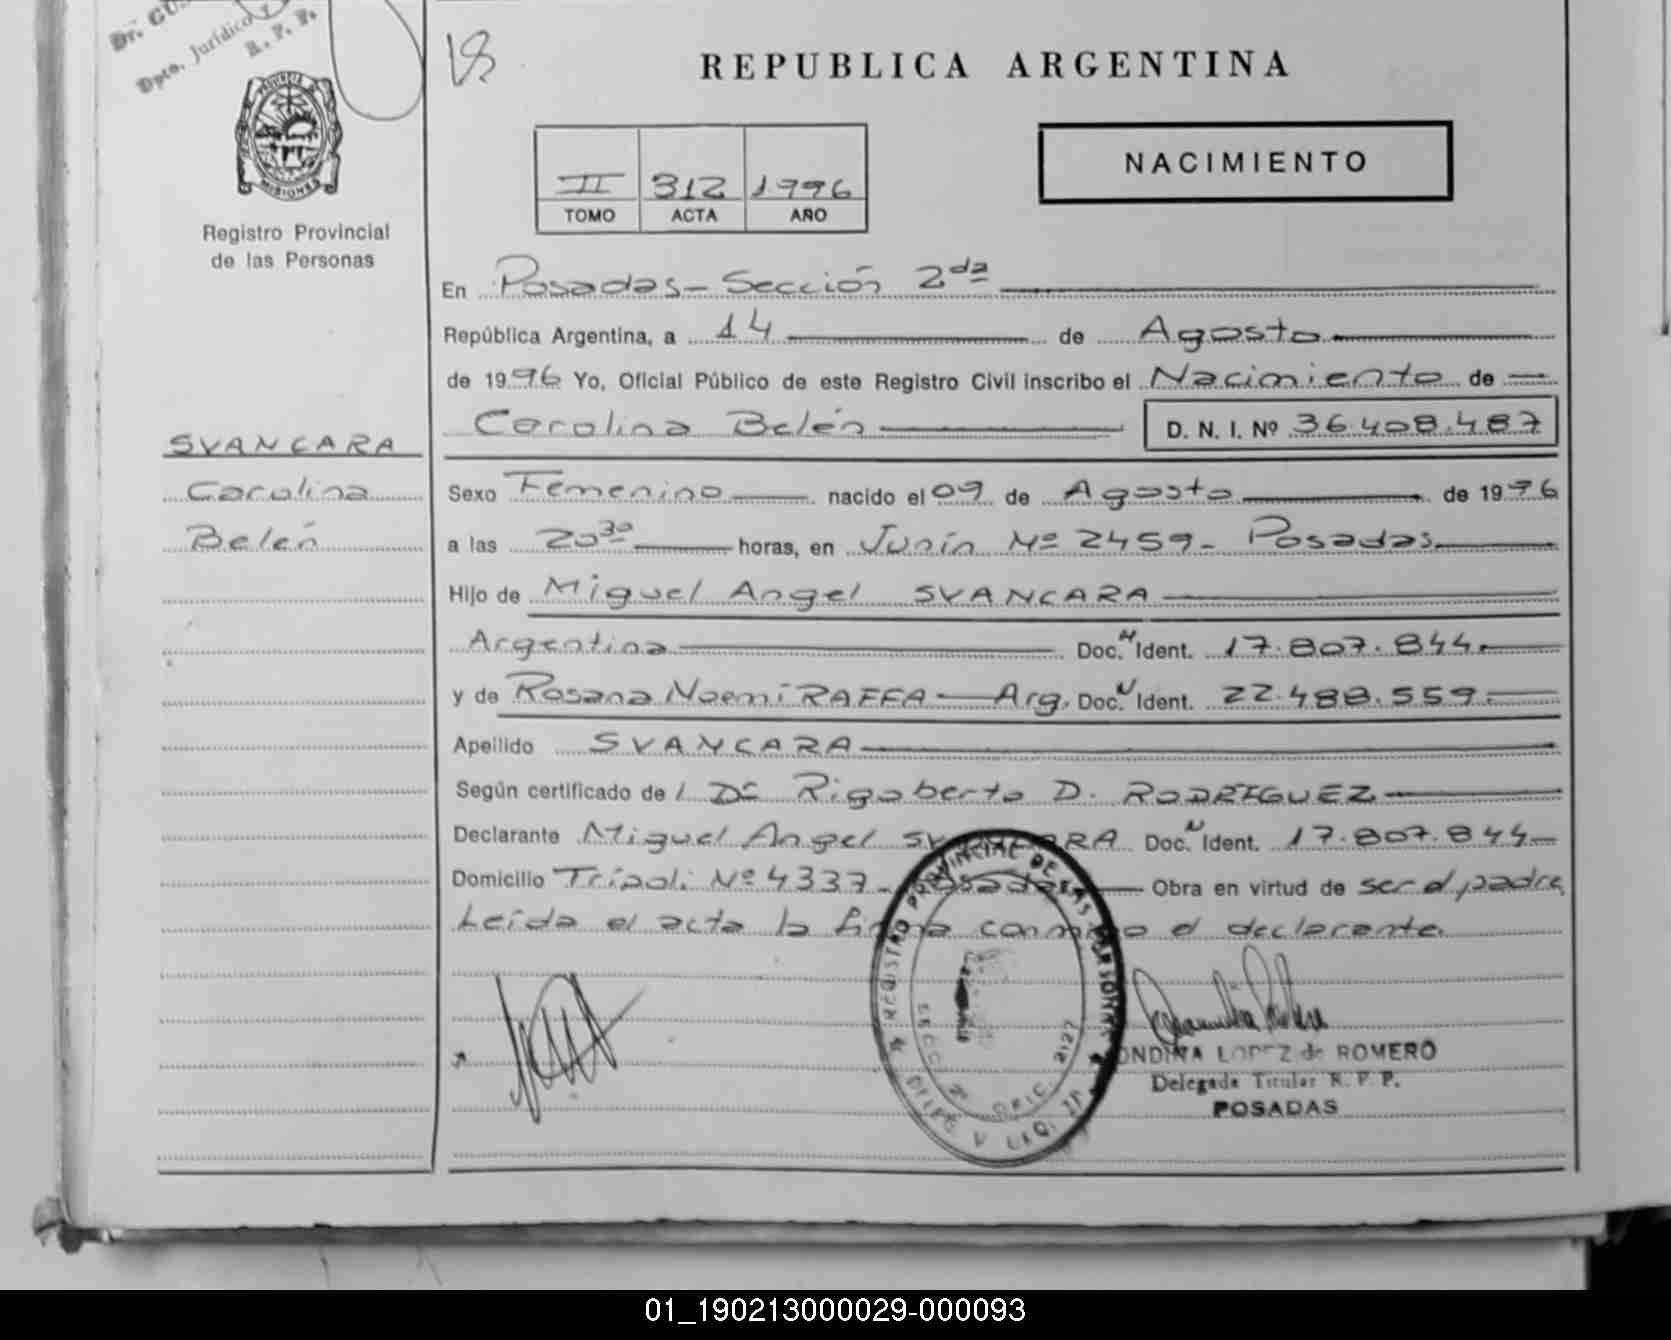 Dr. GUS
Dpto. Jurídico y
R. P. P.
MISIONES
Registro Provincial
de las Personas
REPUBLICA ARGENTINA
II 312 1996
TOMO ACTA AÑO
NACIMIENTO
En Posadas - Sección 2da
República Argentina, a 14 de Agosto
de 1996 Yo, Oficial Público de este Registro Civil inscribo el Nacimiento de
Carolina Belén D. N. I. Nº 36.408.487
SVANCARA
Carolina
Belén
Sexo Femenino nacido el 09 de Agosto de 1996
a las 20 30 horas, en Junín Nº 2459 - Posadas
Hijo de Miguel Angel SVANCARA
Argentina Doc. N Ident. 17.807.844
y de Rosana Noemi RAFFA - Arg. Doc. N Ident. 22.488.559
Apellido SVANCARA
Según certificado de l Dr Rigoberto D. RODRIGUEZ
Declarante Miguel Angel SVANCARA Doc. N Ident. 17.807.844
Domicilio Tripoli Nº 4337 - Posadas Obra en virtud de ser el padre
Leida el acta la firma conmigo el declarante.
REGISTRO PROVINCIAL DE LAS PERSONAS
ONDINA LOPEZ de ROMERO
Delegada Titular R. P. P.
POSADAS
01_190213000029-000093